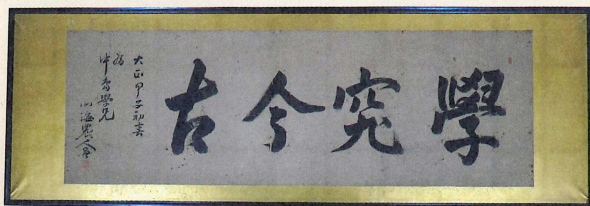 學究今古
大正甲子初春
為
中者學兄